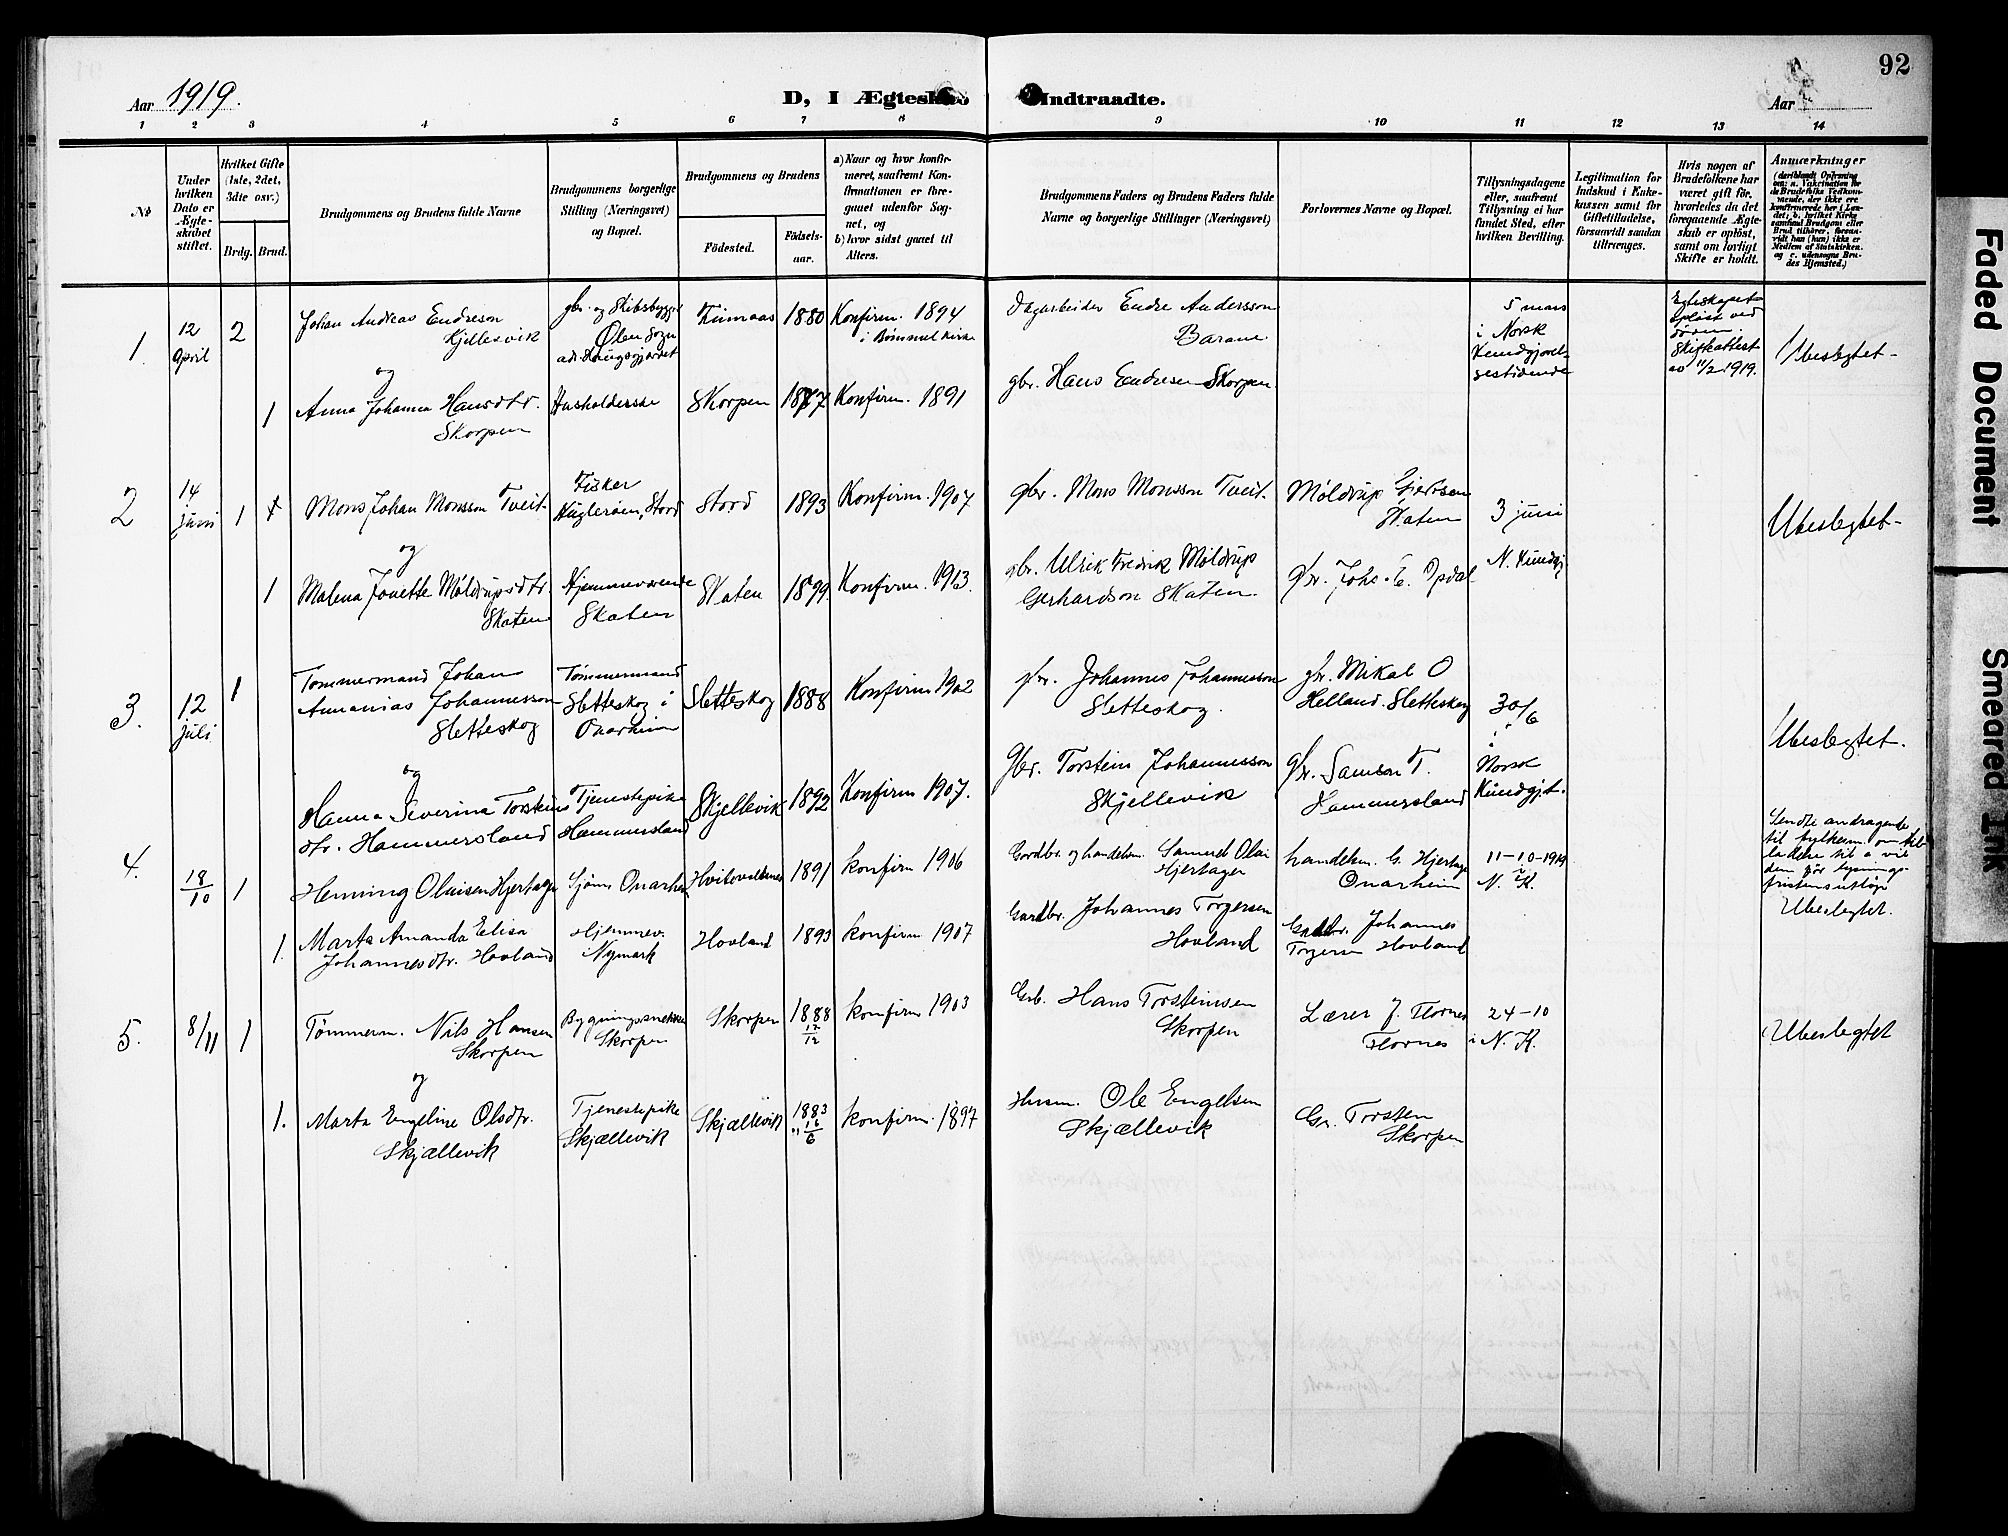 92
Aar 1919.
D, I Ægteskab Indtraadte.
Aar
1 2 3 4 5 6 7 8 9 10 11 12 13 14
№
Under hvilken Dato er Ægteskabet stiftet.
Hvilket Gifte (1ste, 2det, 3dte osv.)
Brdg. Brud.
Brudgommens og Brudens fulde Navne
Brudgommens borgerlige Stilling (Næringsvei) og Bopæl.
Brudgommens og Brudens
Fødested.
Fødselsaar.
a) Naar og hvor konfirmeret, saafremt Konfirmationen er foregaaet udenfor Sognet, og
b) hvor sidst gaaet til Alters.
Brudgommens Faders og Brudens Faders fulde Navne og borgerlige Stillinger (Næringsvei)
Forlovernes Navne og Bopæl.
Tillysningsdagene eller, saafremt Tillysning ei har fundet Sted, efter hvilken Bevilling.
Legitimation for Indskud i Enkekassen samt for Giftetilladelse, forsaavidt saadan tiltrænges.
Hvis nogen af Brudefolkene har været gift før, hvorledes da det foregaaende Ægteskab er opløst, samt om lovligt Skifte er holdt.
Anmærkninger
1. 12 April 2
Johan Andreas Endreson Kjellesvik
gbr. og Skibsbygg.
Ølen Sogn
1880
Konfirm. 1894 i Bømmel Kirke
Dagarbeider Endre Andersson
5 mars i Norsk Kundgjørelsestidende
Egteskapet opløst ved døden. Skifteattest av 11/2-1919.
Ubeslegtet
og
1 Anna Johanna Hansdtr. Skorpen
Husholderske
Skorpen
1877
Konfirm. 1891
gbr. Hans Endresen Skorpen
2 14 juni 1
Mons Johan Monsson Tveit
Fisker
Stord
Stord
1893
Konfirm. 1907
gbr. Mons Monsson Tveit.
Møldrup Gjertsen Skaten
3 juni
N. Kundgj
Ubeslegtet
og
1 Malena Jonette Møldrupsdtr. Skaten
Hjemmeværende Skaten
Skaten
1899
Konfirm. 1913.
gbr. Ulrik Fredrik Møldrup Gerhardson Skaten
gbr. Johs. E. Opdal
3. 12 juli 1
Tømmermand Johan Annanias Johannesson Sletteskog
Tømmermand Sletteskog i Onarheim
Sletteskog
1888
Konfirm 1902
gbr. Johannes Johannesson Sletteskog.
gbr. Mikal O Helland. Sletteskog
30/6 i Norsk Kundgjt.
Ubeslegtet.
og
Hanna Severina Torsteinsdtr. Hammersland
Tjenestepike Hammersland
Skjellevik
1892
Konfirm 1907.
gbr. Torstein Johannesson Skjellevik
gbr. Samson T. Hammersland
4. 18/10 1
Henning Oluisen Hjertager
Sjøm. Onarheim
1891
konfirm 1906
Gardbr. og handelsm. Samuel Olai Hjertager
handelsm. G. Hjertager Onarheim
11-10-1919 i N. K.
Ubeslegtet.
1. Marta Amanda Elisa Johannesdtr. Hovland
Hjemmev. Nymark
Hovland
1893
konfirm 1907
Gardbr. Johannes Torgersen Hovland
Gardbr. Johannes Torgersen Hovland
5. 8/11 1
Tømmerm. Nils Hansen Skorpen
Bygningssnekker Skorpen
Skorpen
1888 17/12
konfirm 1903
Grb. Hans Torsteinsen Skorpen
Lærer J. Flornes Flornes
24-10 i N. K.
Ubeslegtet
og
1. Marta Engeline Olsdtr. Skjællevik
Tjenestepike Skjællevik
Skjællevik
1883 16/6
konfirm. 1897
Husm. Ole Engelsen Skjællevik
Gr. Torsten Skorpen
Faded Document
Smeared Ink